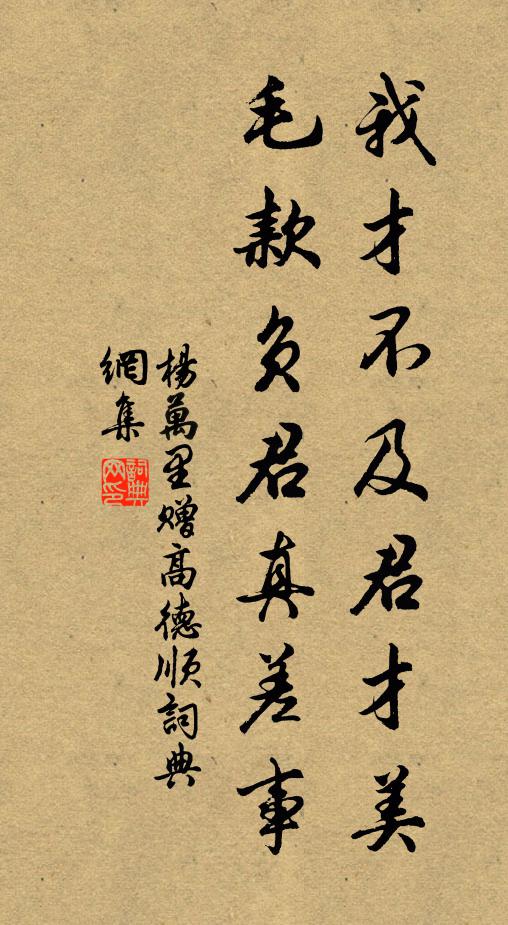 我才不及君才美
毛款負君真差事
楊萬里贈高德順詞典
網集
詞典
网印